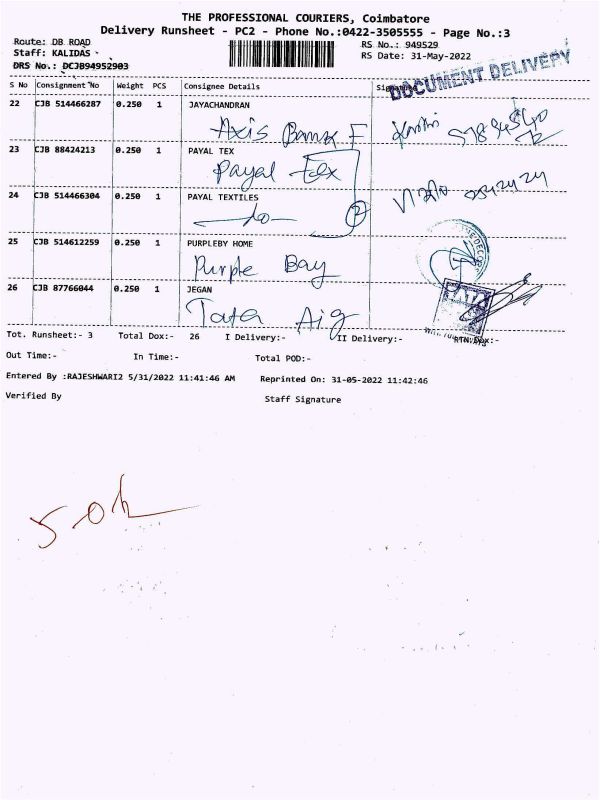 THE PROFESSIONAL COURIERS, Coimbatore
Delivery Runsheet - PC2 - Phone No.:0422-3505555 - Page No.:3
Route: DB ROAD
RS No.: 949529
Staff: KALIDAS
RS Date: 31-May-2022
DRS No.: DCJB94952903
DOCUMENT DELIVERY
S No Consignment No Weight PCS Consignee Details Signature
22 CJB 514466287 0.250 1 JAYACHANDRAN
Axis Bank F
23 CJB 88424213 0.250 1 PAYAL TEX
Payal Tex
24 CJB 514466304 0.250 1 PAYAL TEXTILES
-do- 2
25 CJB 514612259 0.250 1 PURPLEBY HOME
Purple Bay
26 CJB 87766044 0.250 1 JEGAN
Tata Aig
Tot. Runsheet:- 3 Total Dox:- 26 I Delivery:- II Delivery:- RTN Dox:-
Out Time:- In Time:- Total POD:-
Entered By :RAJESHWARI2 5/31/2022 11:41:46 AM Reprinted On: 31-05-2022 11:42:46
Verified By Staff Signature